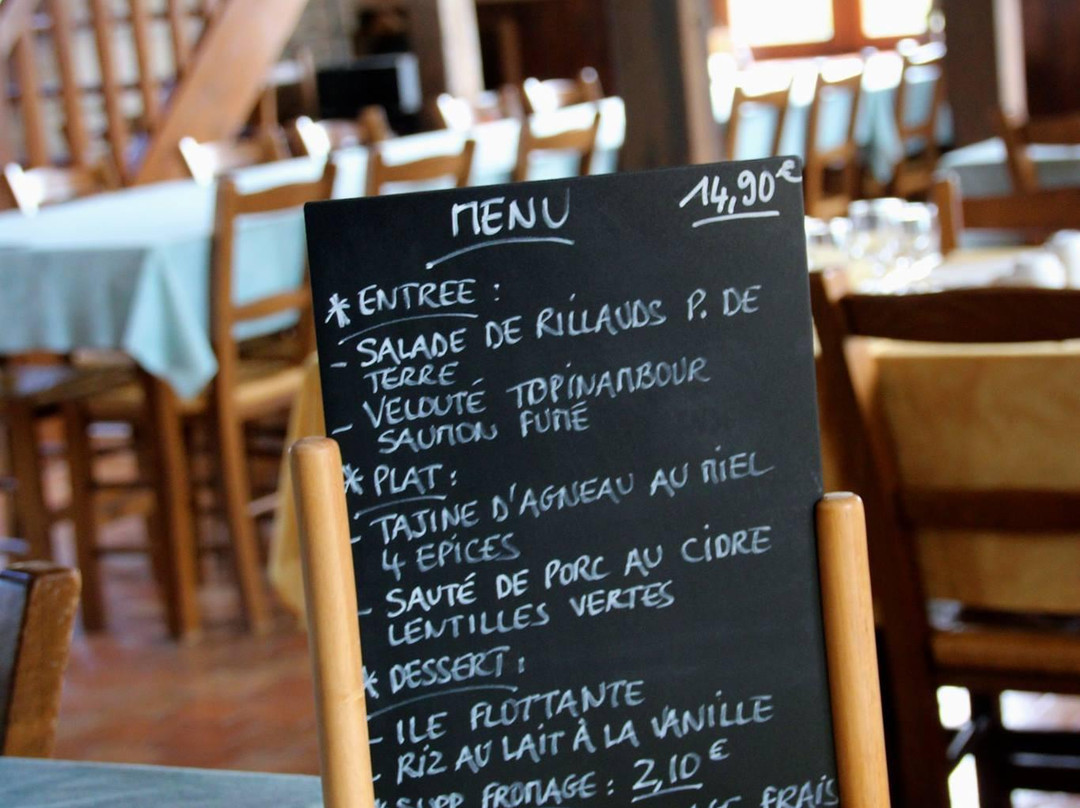 MENU 14,90€
* ENTREE :
- SALADE DE RILLAUDS P. DE
TERRE
- VELOUTÉ TOPINAMBOUR
SAUMON FUMÉ
* PLAT :
- TAJINE D'AGNEAU AU MIEL
4 EPICES
- SAUTÉ DE PORC AU CIDRE
LENTILLES VERTES
* DESSERT :
- ILE FLOTTANTE
- RIZ AU LAIT À LA VANILLE
* SUPP FROMAGE : 2,10€
FRAIS